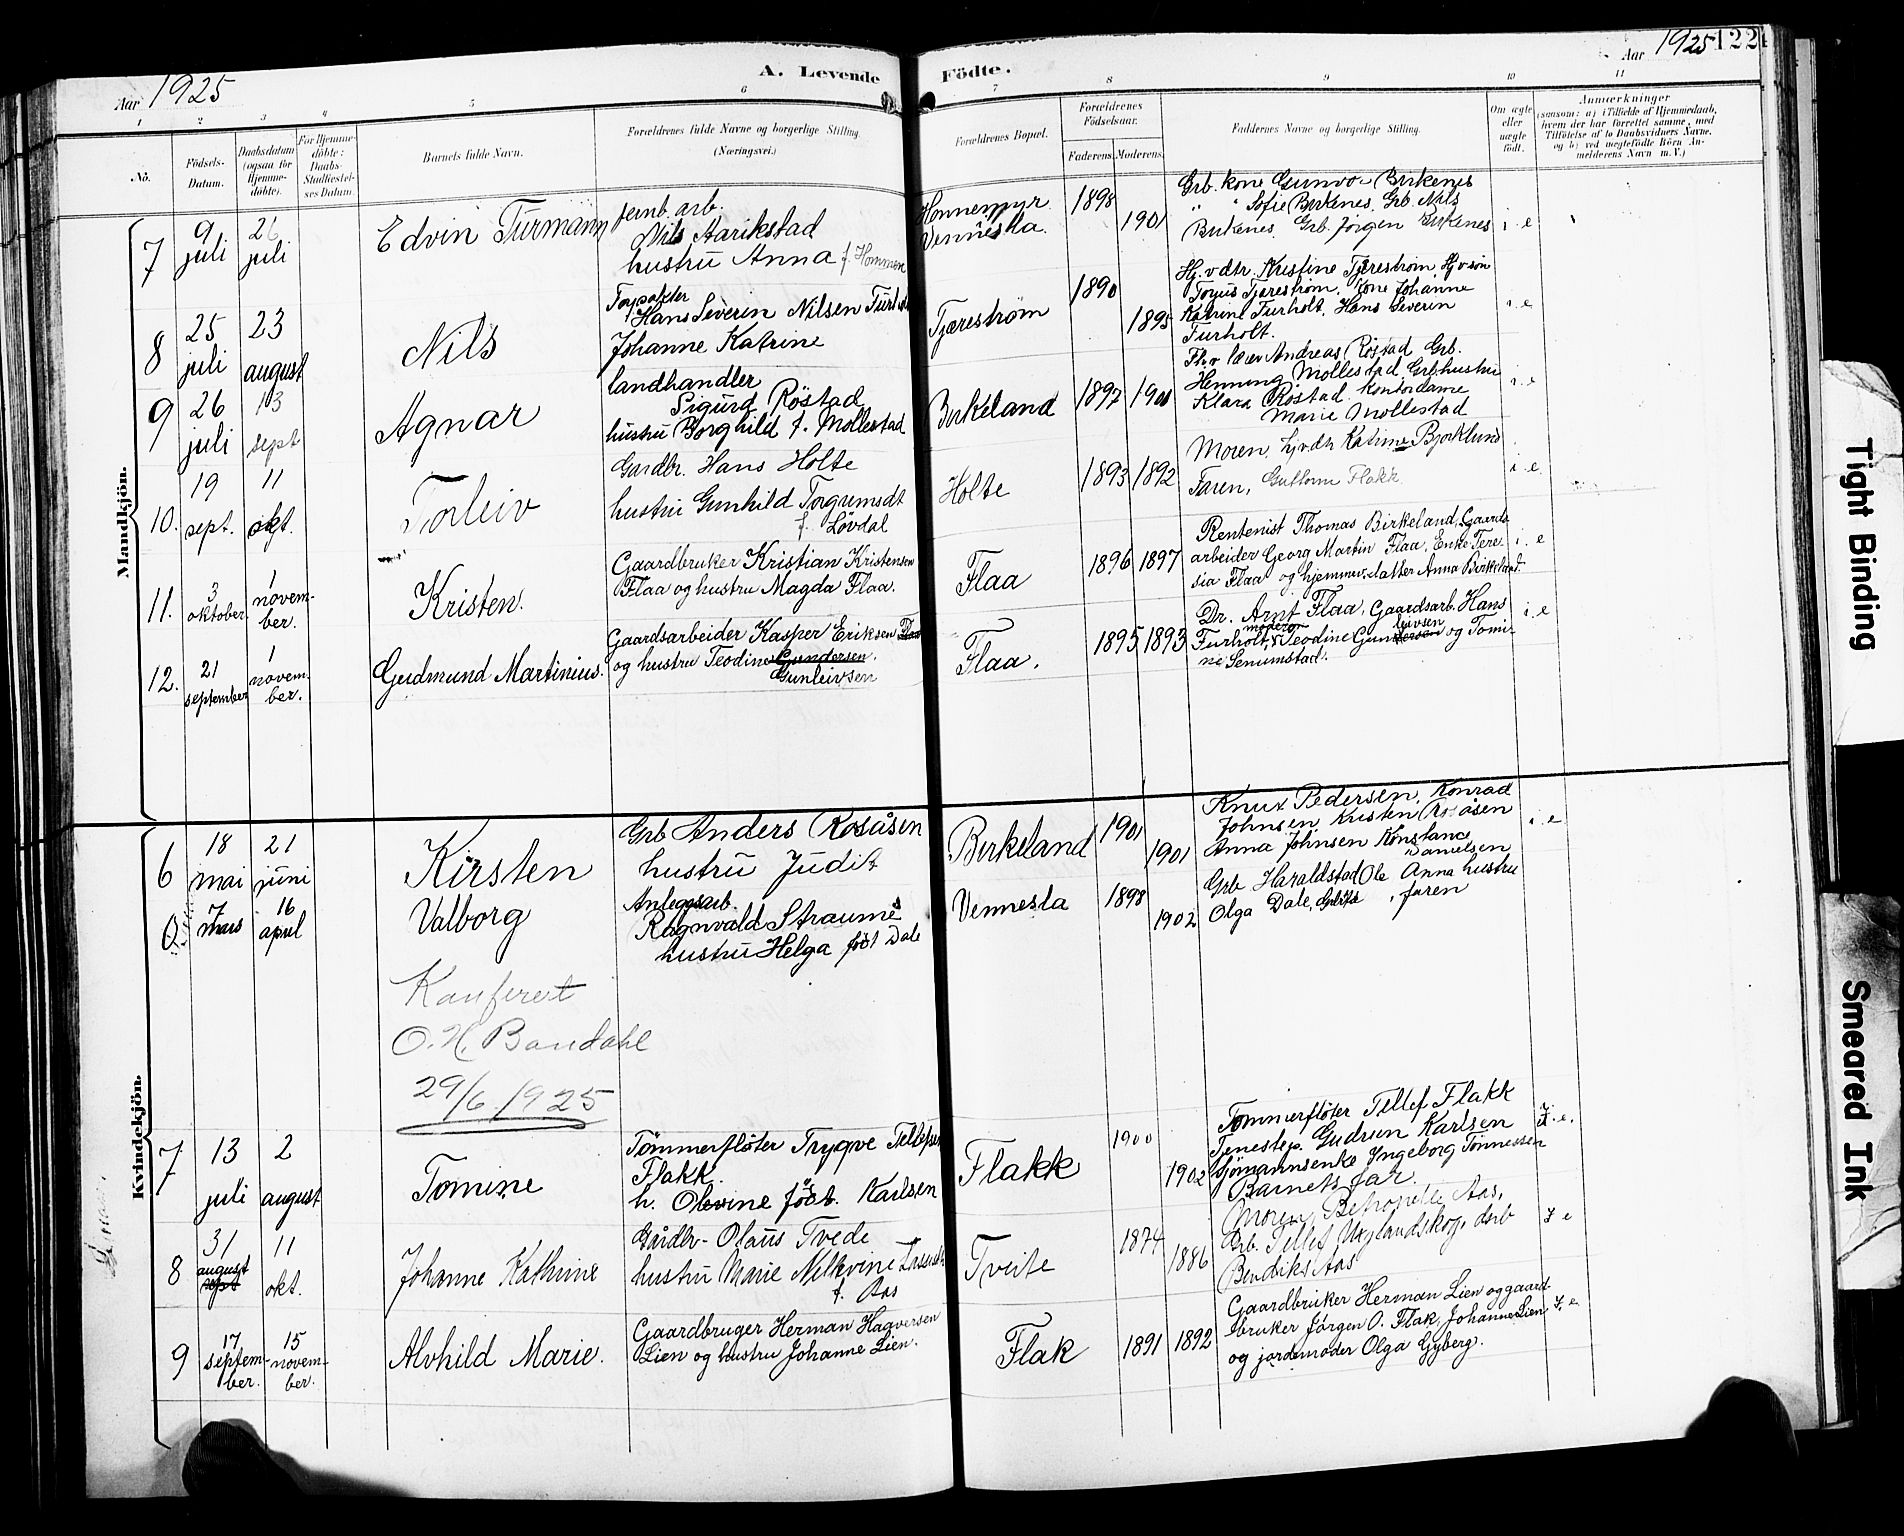 Aar 1925
A. Levende Födte.
Aar 1925 122
1 2 3 4 5 6 7 8 9 10 11
No.
Födsels-
Datum.
Daabsdatum
(ogsaa for
Hjemme-
döbte).
For Hjemme-
döbte:
Daabs-
Stadfæstel-
ses Datum.
Barnets fulde Navn.
Forældrenes fulde Navne og borgerlige Stilling.
(Næringsvei.)
Forældrenes Bopæl.
Forældrenes
Födselsaar.
Faderens. Moderens.
Faddernes Navne og borgerlige Stilling.
Om ægte
eller
uægte
födt.
Anmærkninger
(saasom: a) i Tilfælde af Hjemmedaab,
hvem der har forrettet samme, med
Tilföielse af to Daabsvidners Navne,
og b) ved uægtefödte Börn An-
melderens Navn m. V.)
Mandkjön.
7
9
juli
26
juli
Edvin Turmann
jernb. arb.
Nils Aarikstad
hustru Anna f. Hommen
Honnemyr
Vennesla.
1898
1901
Grb. kone Gunvor Birkenes
" " Sofie Birkenes. Grb. Nils
Birkenes. Grb. Jörgen Birkenes
i e
8
25
juli
23
august
Nils
Hans Severin Nilsen
Johanne Katrine
Tjærestrøm
1890
1895
Hj.v.dtr. Kristine Tjærestrøm, Hj.v søn
Tjærestrøm. Kone Johanne
Katrine Furholt. Hans Severin
Furholt.
i. e
9
26
juli
13
sept
Agnar
landhandler
Sigurd Röstad
hustru Borghild f. Mollestad
Birkeland
1892
1901
Fhv. lærer Andreas Röstad Grb.
Henning Mollestad Grb.hustru
Klara Röstad. Kontordame
Marie Mollestad
i. e
10.
19
sept.
11
okt.
Torleiv
Gardbr. Hans Holte
hustru Gunhild Torgrimsdt
f. Løvdal
Holte
1893
1892
Moren, hj.v.dtr Katrine Bjorklund
Faren, Guttorm Flakk.
i. e.
11.
3
oktober
1
novem-
ber.
Kristen.
Gaardbruker Kristian Kristensen
Flaa og hustru Magda Flaa.
Flaa
1896
1897
Rentenist Thomas Birkeland, Gaards
arbeider Georg Martin Flaa, Enke Tere
sia Flaa og hjemmev. datter Anna Birkeland.
i. e
12.
21
september
1
novem-
ber.
Gudmund Martinius.
Gaardsarbeider Kasper Eriksen Flaa
og hustru Teodine Gundersen.
Gunleivsen
Flaa.
1895
1893
Dr. Arnt Flaa, Gaardsarb. Hans
moderen leivsen
Furholt, Teodine Gundersen og Tomi-
ne Senumstad.
i. e
Kvindekjön.
6
18
mai
21
juni
Kirsten
Grb Anders Rosåsen
hustru Judit
Birkeland
1901
1901
Knut Pedersen, Konrad
Johnsen, Kristen Rosåsen
Anna Johnsen Konstance
Danielsen
i. e
7
mars
16
april
Valborg
Anleggsarb.
Ragnvald Straume
hustru Helga född Dale
Vennesla
1898
1902
Grb Haraldstad Ole Anna hustru
Olga Dale, faren
Konferert
O. H. Bandahl
29/6 1925
7
13
juli
2
august
Tomine
Tömmerflöter Trygve Tellefsen
Flakk.
h. Olevine född. Karlsen
Flakk
1900
1902
Tommerflöter Tellef Flakk
Tjenestep. Gudrun Karlsen
Sjömannsenke Ingeborg Tönnessen
Barnets far.
i. e.
8
31
august
sept
11
okt.
Johanne Kathrine
Gårdbr- Olaus Tvede
hustru Marie
f. Aas
Tveite
1874
1886
Moren, Aas,
Grb. Tellef
Bendiks Aas
i e
9
17
septem-
ber.
15
novem-
ber.
Alvhild Marie.
Gaardbruger Herman Haaversen
Lien og hustru Johanne Lien.
Flak
1891
1892
Gaardbruker Herman Lien og gaard-
bruker Jörgen O. Flak, Johanne Lien
og jordemoder Olga Gyberg.
i. e
Tight Binding
Smeared Ink